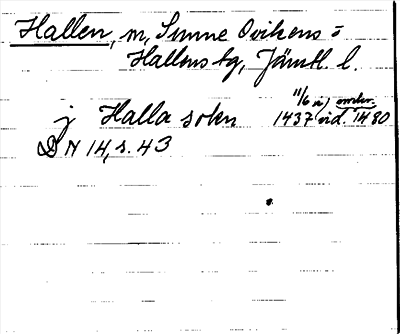 Hallen, m, Sunne Ovikens o
Hallens tg, Jämtl. l.
j Halla soken 11/6 1437 vid. omkr. 1480
DN 14, s. 43